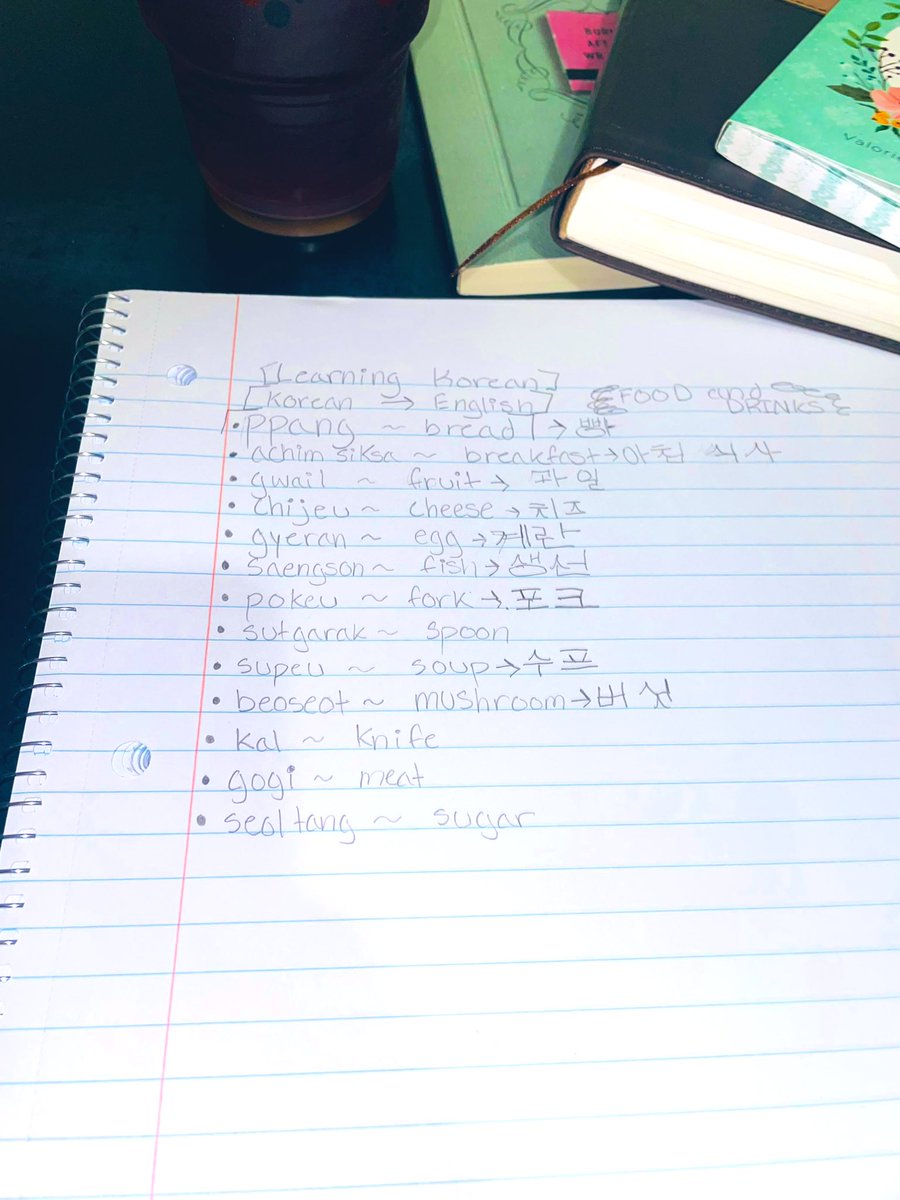 BUR
AFT
WR
Valorie
[Learning Korean]
[Korean ⇒ English] FOOD and DRINKS
• ppang ~ bread → 빵
• achim siksa ~ breakfast → 아침 식사
• gwail ~ fruit → 과일
• chijeu ~ cheese → 치즈
• gyeran ~ egg → 계란
• saengson ~ fish → 생선
• pokeu ~ fork → 포크
• sutgarak ~ spoon
• supeu ~ soup → 수프
• beoseot ~ mushroom → 버섯
• kal ~ knife
• gogi ~ meat
• seoltang ~ sugar